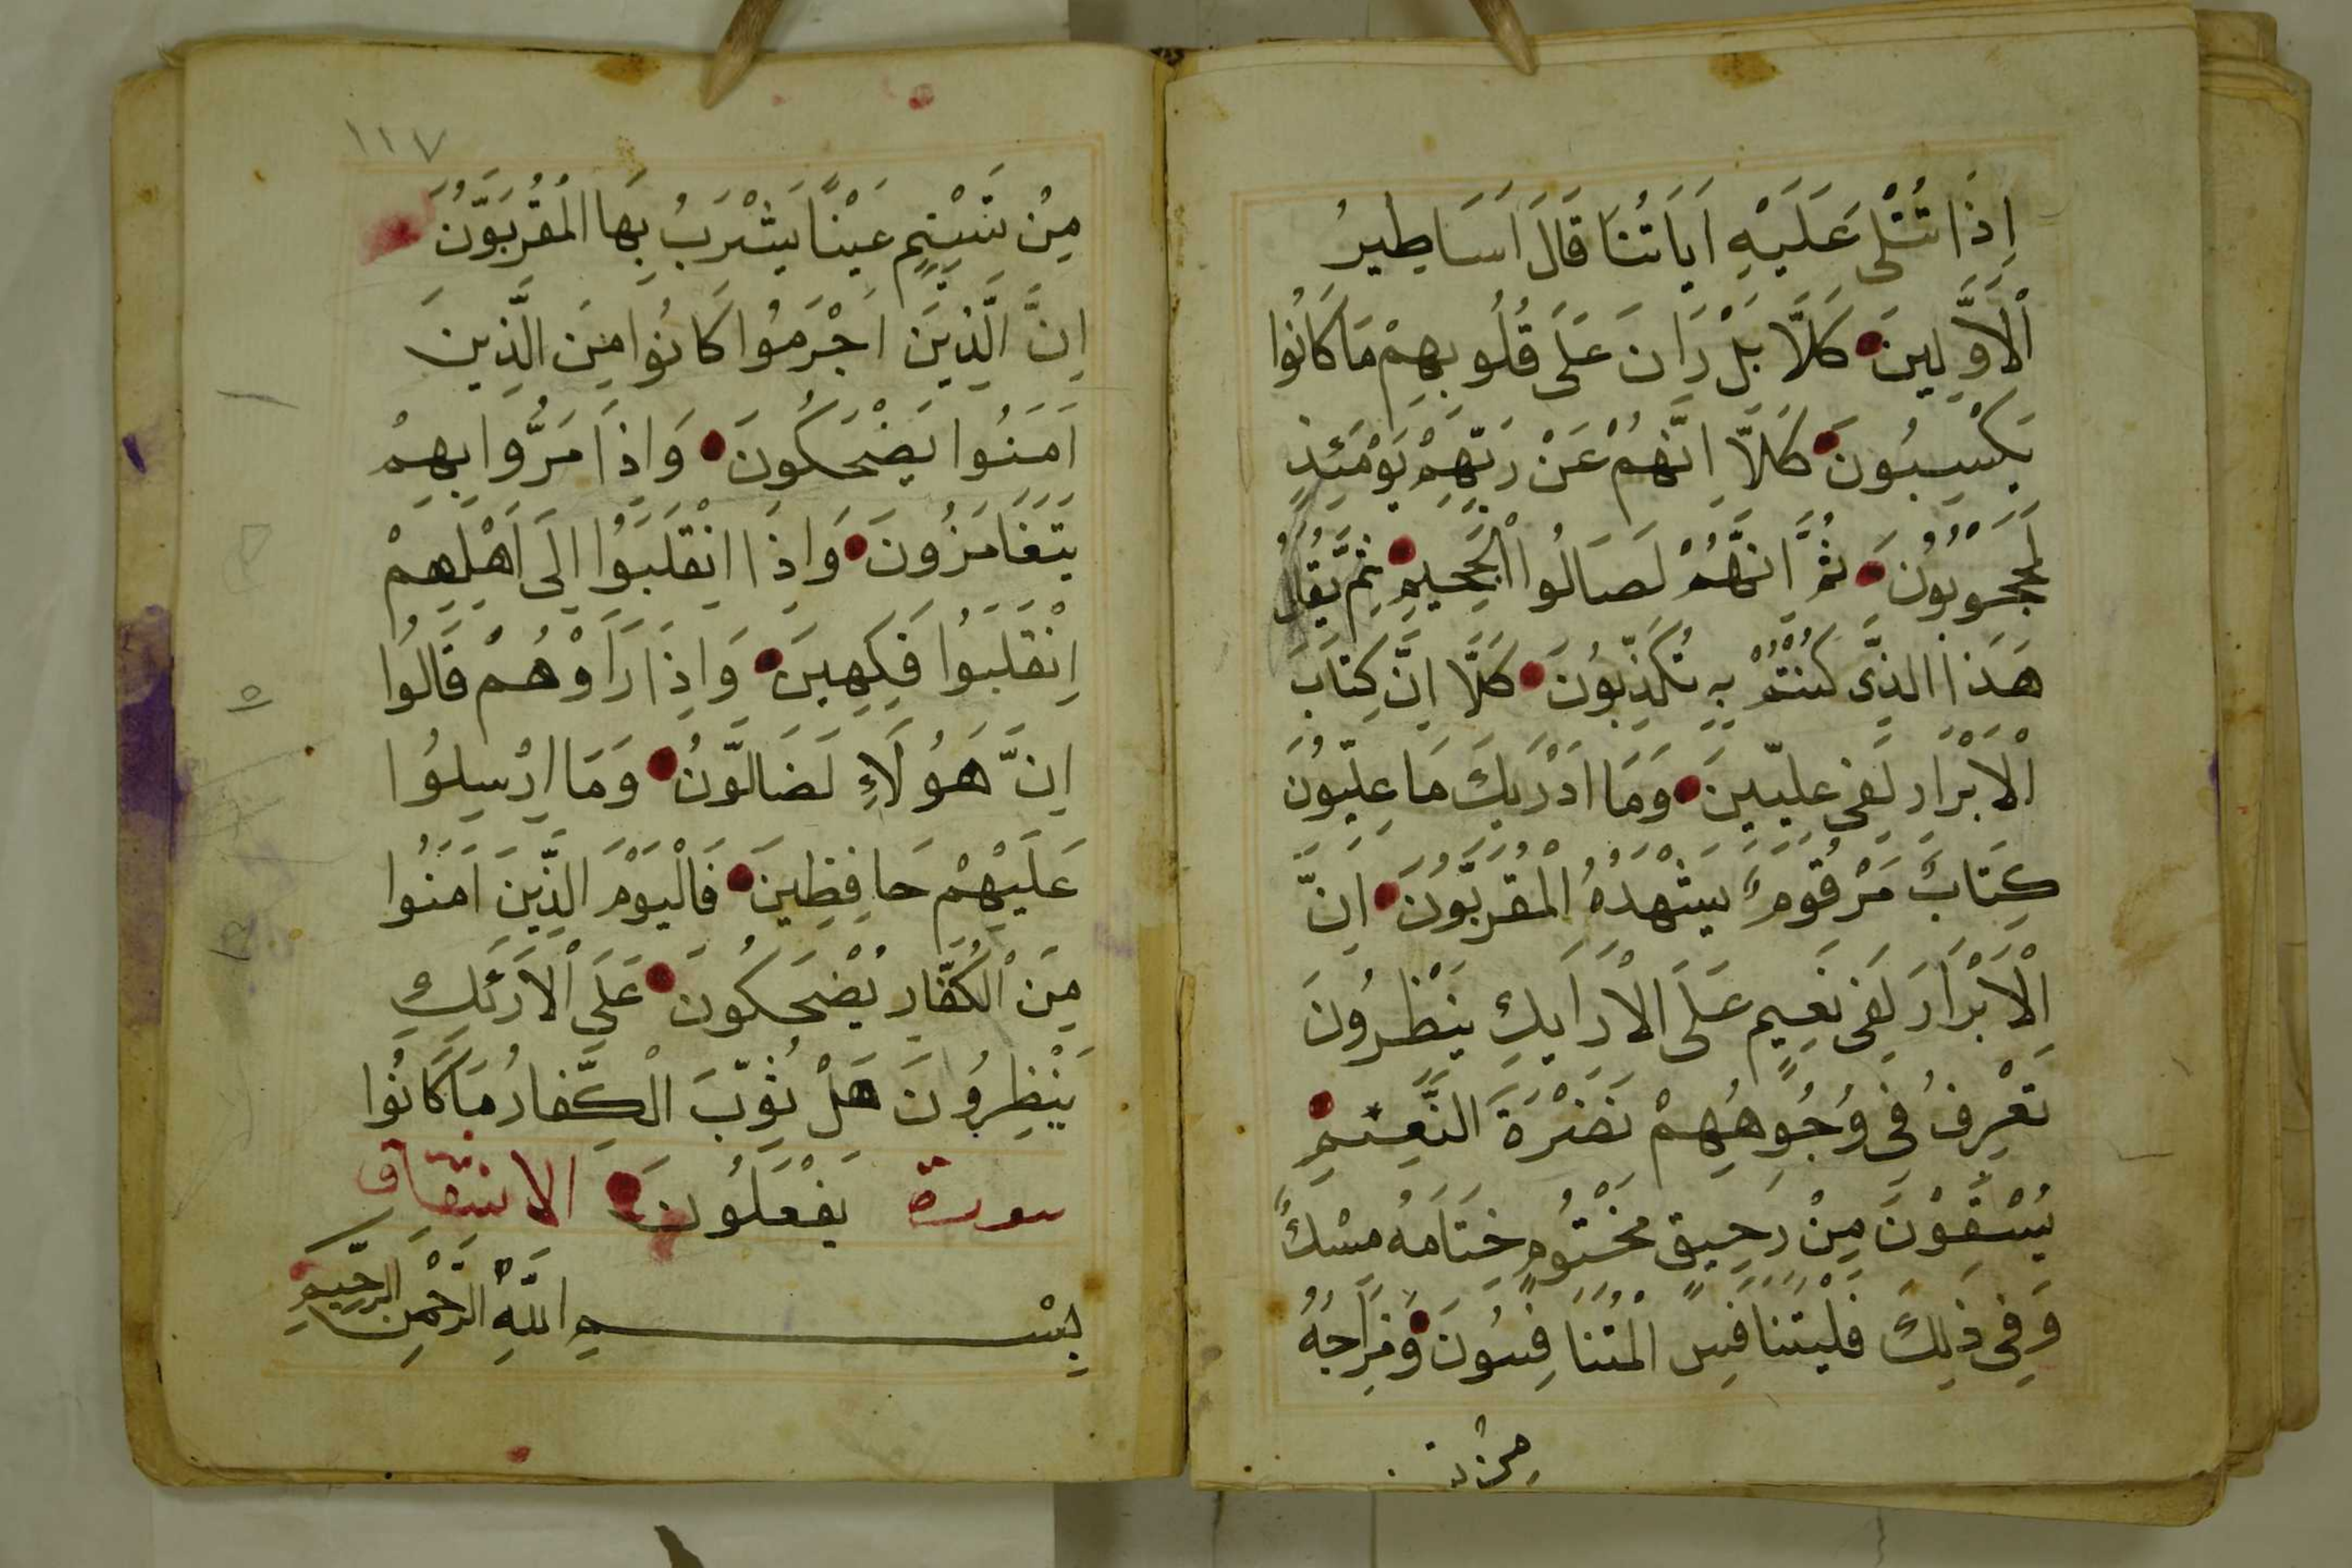 اِذَا تُتْلٰى عَلَيْهِ اَيَاتُنَا قَالَ اَسَاطِيرُ
الْاَوَّلِينَ كَلَّا بَلْ رَانَ عَلَى قُلُوبِهِمْ مَا كَانُوا
يَكْسِبُونَ كَلَّا اِنَّهُمْ عَنْ رَبِّهِمْ يَوْمَئِذٍ
لَمَحْجُوبُونَ ثُمَّ اِنَّهُمْ لَصَالُوا الْجَحِيمِ ثُمَّ يُقَالُ
هَذَا الَّذِى كُنْتُمْ بِهِ تُكَذِّبُونَ كَلَّا اِنَّ كِتَابَ
الْاَبْرَارِ لَفِى عِلِّيِّينَ وَمَا اَدْرَيكَ مَا عِلِّيُّونَ
كِتَابٌ مَرْقُومٌ يَشْهَدُهُ الْمُقَرَّبُونَ اِنَّ
الْاَبْرَارَ لَفِى نَعِيمٍ عَلَى الْاَرَايِكِ يَنْظُرُونَ
تَعْرِفُ فِى وُجُوهِهِمْ نَضْرَةَ النَّعِيمِ
يُسْقَوْنَ مِنْ رَحِيقٍ مَخْتُومٍ خِتَامُهُ مِسْكٌ
وَفِى ذٰلِكَ فَلْيَتَنَافَسِ الْمُتَنَافِسُونَ وَمِزَاجُهُ
مِنْ
١١٧
مِنْ تَسْنِيمٍ عَيْنًا يَشْرَبُ بِهَا الْمُقَرَّبُونَ
اِنَّ الَّذِينَ اَجْرَمُوا كَانُوا مِنَ الَّذِينَ
اَمَنُوا يَضْحَكُونَ وَاِذَا مَرُّوا بِهِمْ
يَتَغَامَزُونَ وَاِذَا انْقَلَبُوا اِلَى اَهْلِهِمْ
اِنْقَلَبُوا فَكِهِينَ وَاِذَا رَاَوْهُمْ قَالُوا
اِنَّ هَؤُلَاءِ لَضَالُّونَ وَمَا اُرْسِلُوا
عَلَيْهِمْ حَافِظِينَ فَالْيَوْمَ الَّذِينَ اَمَنُوا
مِنَ الْكُفَّارِ يَضْحَكُونَ عَلَى الْاَرَئِكِ
يَنْظُرُونَ هَلْ ثُوِّبَ الْكُفَّارُ مَا كَانُوا
سورة يَفْعَلُونَ الانشقاق
بِسْمِ اللّٰهِ الرَّحْمٰنِ الرَّحِيمِ